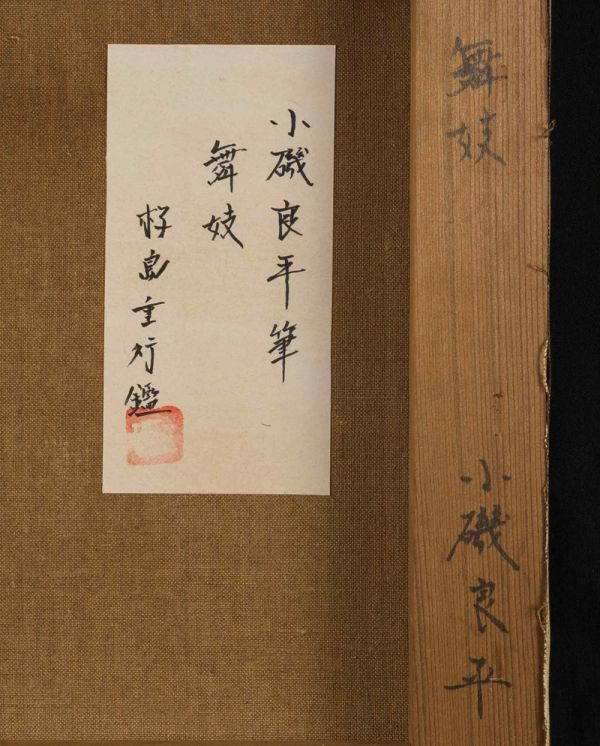 舞妓
小磯良平
小磯良平筆
舞妓
島重行鑑